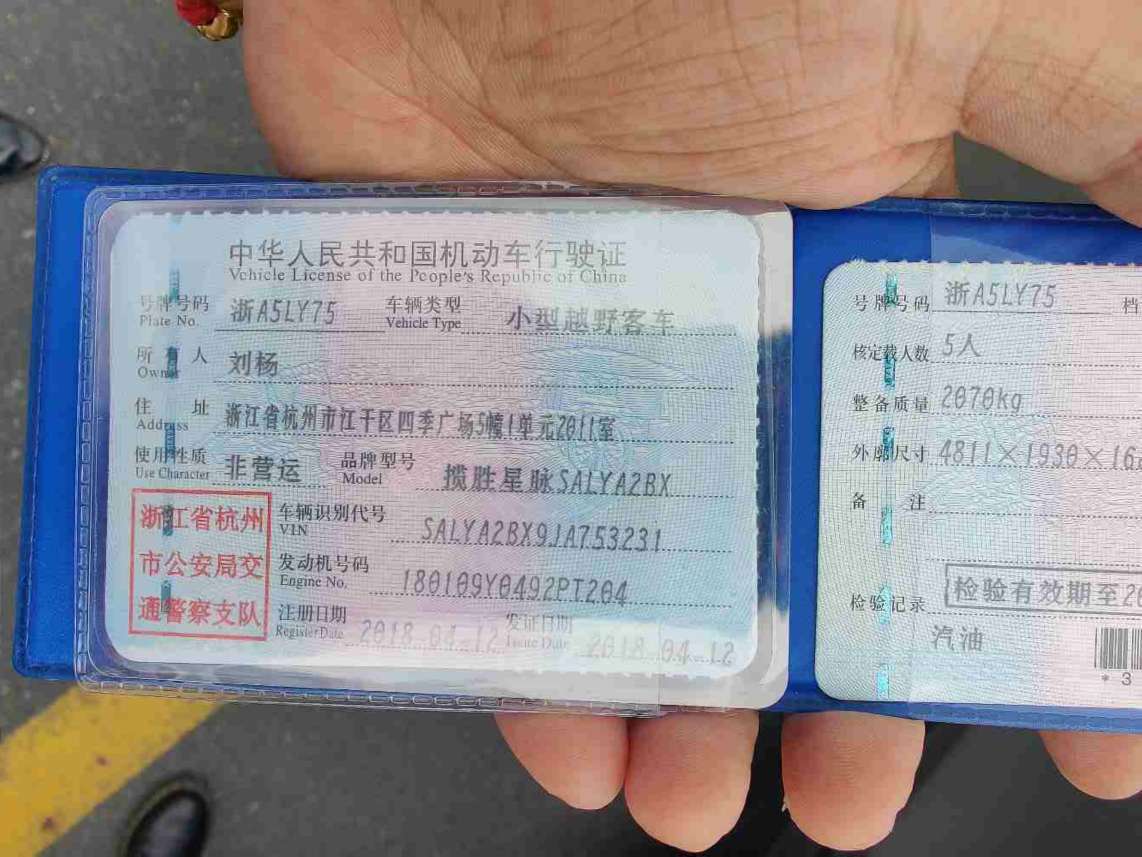 中华人民共和国机动车行驶证
Vehicle License of the People's Republic of China
号牌号码 浙A5LY75 车辆类型 小型越野客车
Plate No. Vehicle Type
所有人 刘杨
Owner
住址 浙江省杭州市江干区四季广场5幢1单元2011室
Address
使用性质 非营运 品牌型号 揽胜星脉SALYA2BX
Use Character Model
浙江省杭州
市公安局交
通警察支队
车辆识别代号 SALYA2BX9JA753231
VIN
发动机号码 180109Y0492PT204
Engine No.
注册日期 2018.04.12 发证日期 2018.04.12
Register Date Issue Date
号牌号码 浙A5LY75 档
核定载人数 5人
整备质量 2070kg
外廓尺寸 4811×1930×16
备注
检验记录 检验有效期至20
汽油
*3